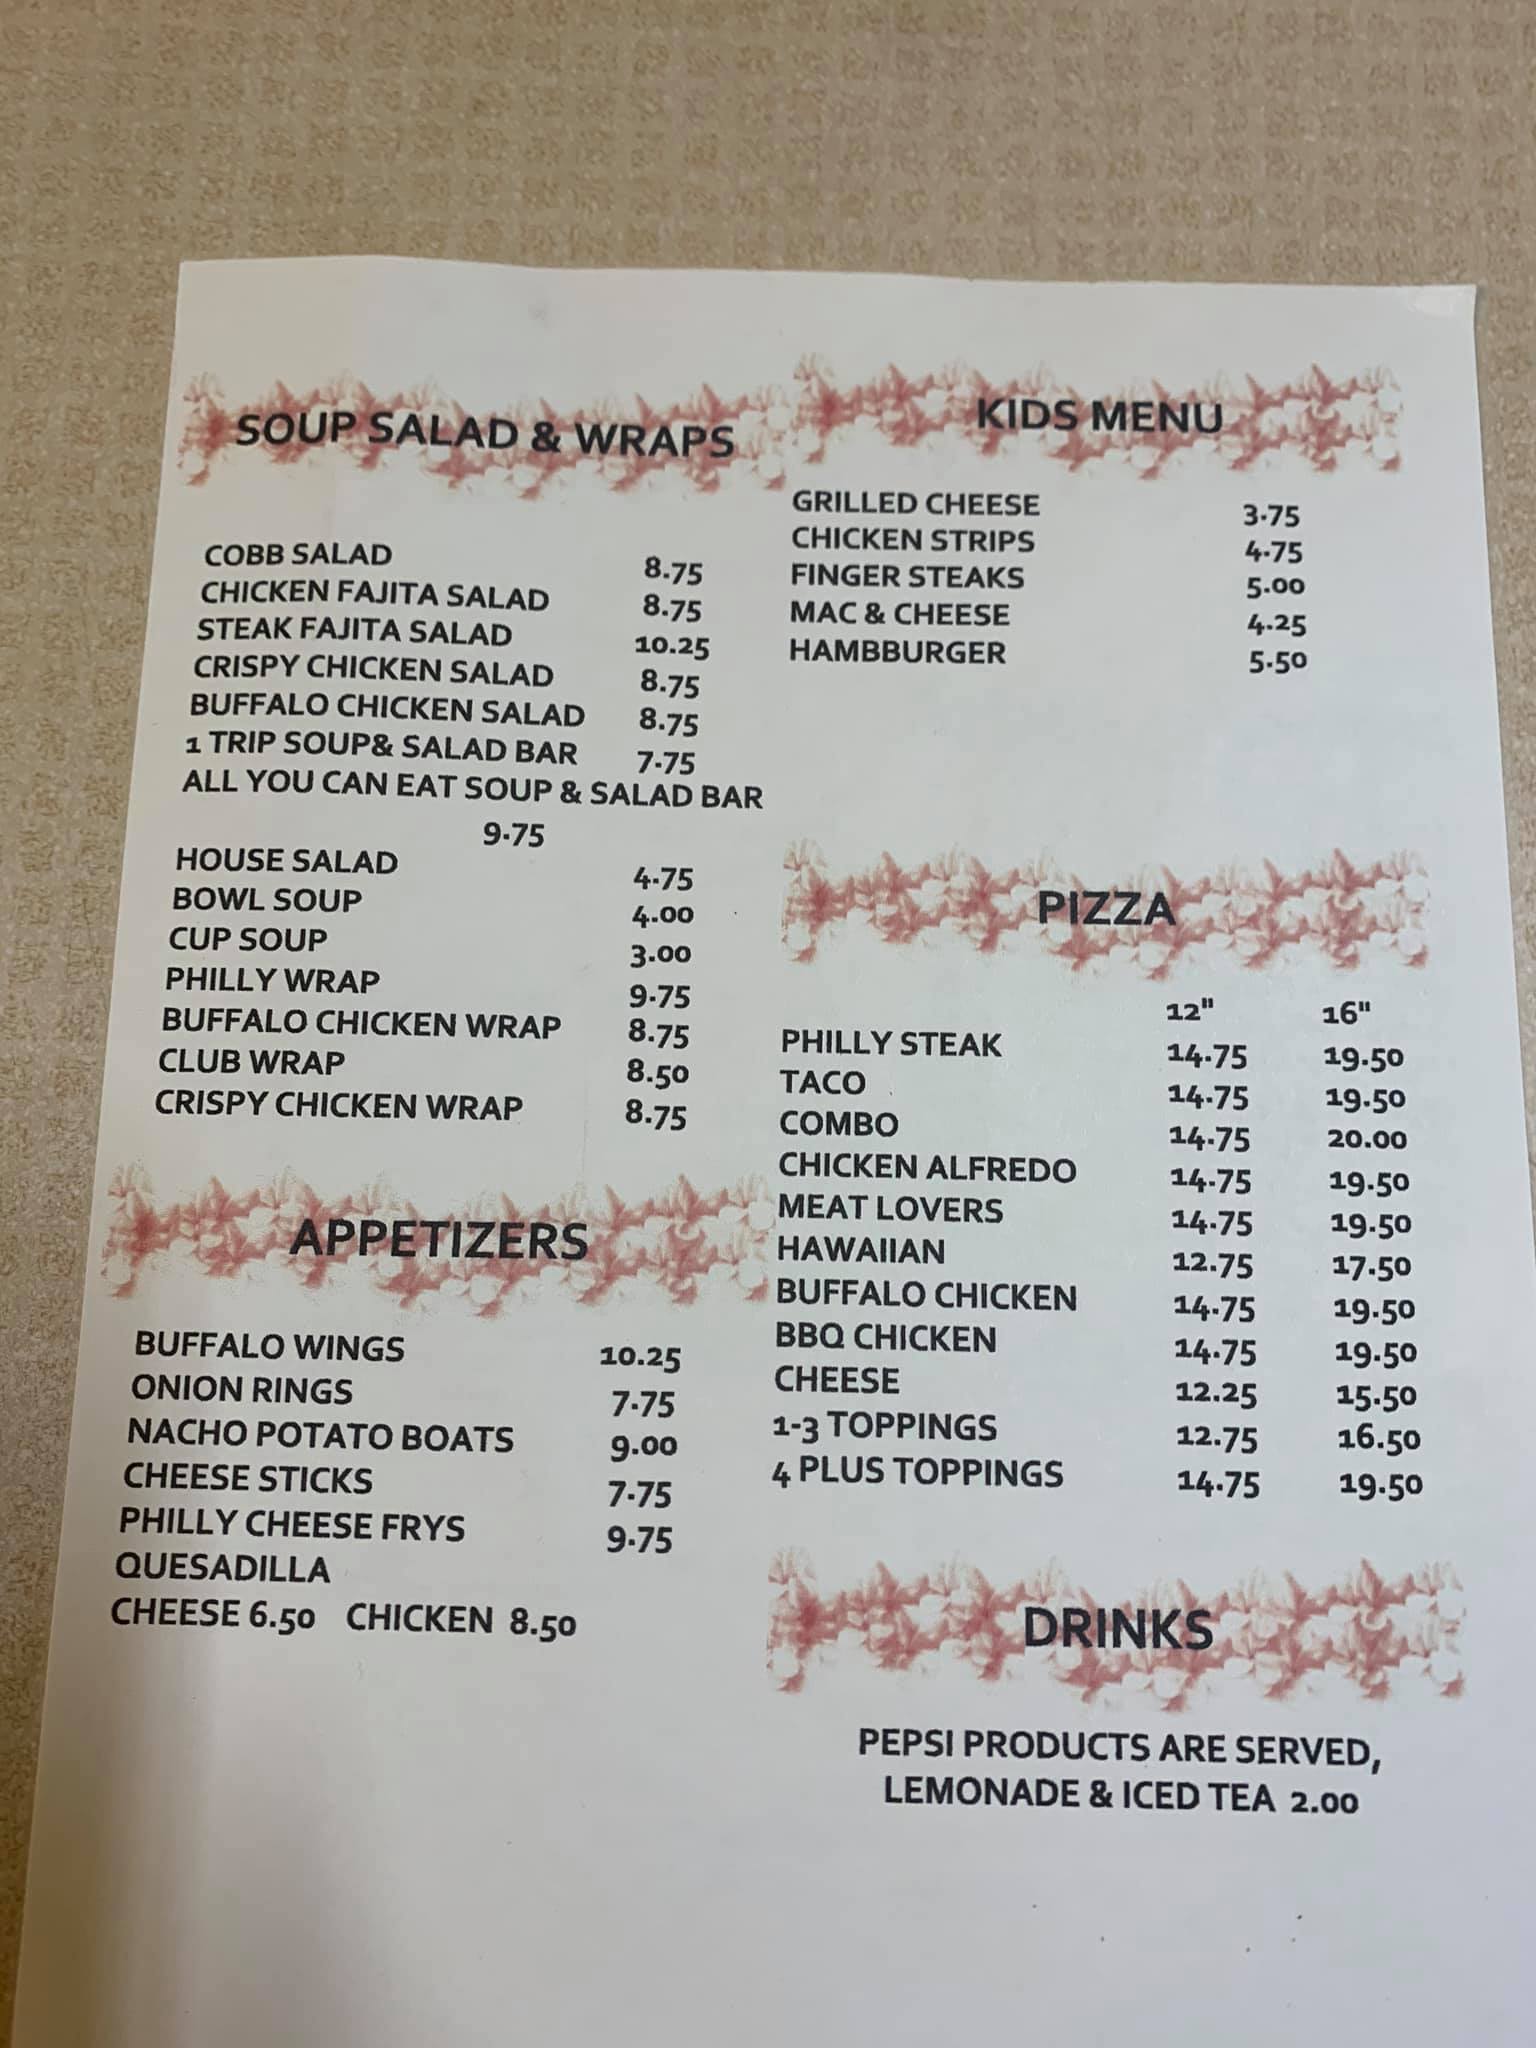 SOUP SALAD & WRAPS
COBB SALAD 8.75
CHICKEN FAJITA SALAD 8.75
STEAK FAJITA SALAD 10.25
CRISPY CHICKEN SALAD 8.75
BUFFALO CHICKEN SALAD 8.75
1 TRIP SOUP& SALAD BAR 7.75
ALL YOU CAN EAT SOUP & SALAD BAR
9.75
HOUSE SALAD 4.75
BOWL SOUP 4.00
CUP SOUP 3.00
PHILLY WRAP 9.75
BUFFALO CHICKEN WRAP 8.75
CLUB WRAP 8.50
CRISPY CHICKEN WRAP 8.75
APPETIZERS
BUFFALO WINGS 10.25
ONION RINGS 7.75
NACHO POTATO BOATS 9.00
CHEESE STICKS 7.75
PHILLY CHEESE FRYS 9.75
QUESADILLA
CHEESE 6.50 CHICKEN 8.50
KIDS MENU
GRILLED CHEESE 3.75
CHICKEN STRIPS 4.75
FINGER STEAKS 5.00
MAC & CHEESE 4.25
HAMBBURGER 5.50
PIZZA
12" 16"
PHILLY STEAK 14.75 19.50
TACO 14.75 19.50
COMBO 14.75 20.00
CHICKEN ALFREDO 14.75 19.50
MEAT LOVERS 14.75 19.50
HAWAIIAN 12.75 17.50
BUFFALO CHICKEN 14.75 19.50
BBQ CHICKEN 14.75 19.50
CHEESE 12.25 15.50
1-3 TOPPINGS 12.75 16.50
4 PLUS TOPPINGS 14.75 19.50
DRINKS
PEPSI PRODUCTS ARE SERVED,
LEMONADE & ICED TEA 2.00